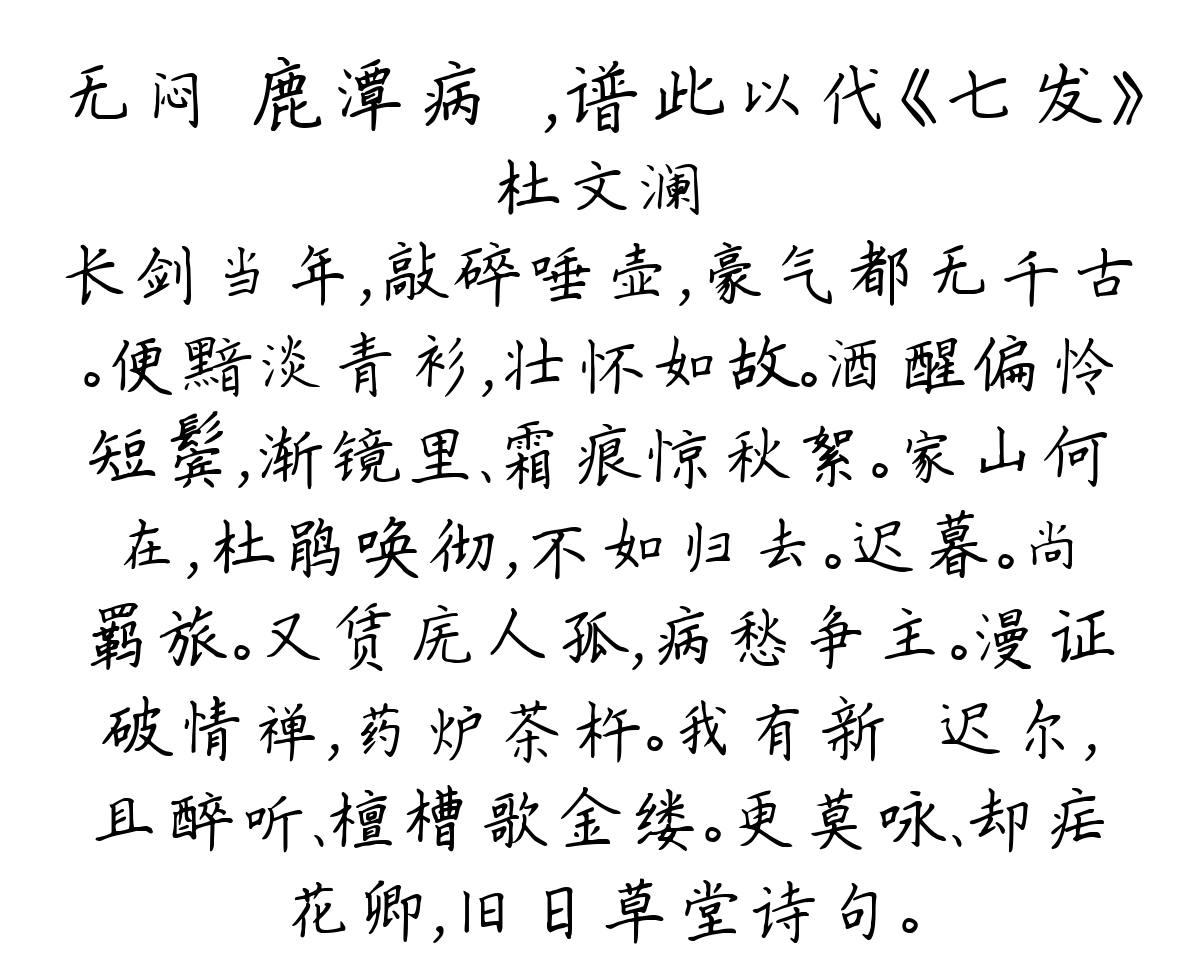 无闷 鹿潭病 ,谱此以代《七发》
杜文澜
长剑当年,敲碎唾壶,豪气都无千古
。便黯淡青衫,壮怀如故。酒醒偏怜
短鬓,渐镜里、霜痕惊秋絮。家山何
在,杜鹃唤彻,不如归去。迟暮。尚
羁旅。又赁庑人孤,病愁争主。漫证
破情禅,药炉茶杵。我有新 迟尔,
且醉听、檀槽歌金缕。更莫咏、却疟
花卿,旧日草堂诗句。